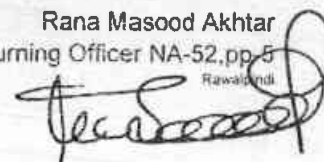 Rana Masood Akhtar
urning Officer NA-52,pp-5
Rawalpindi